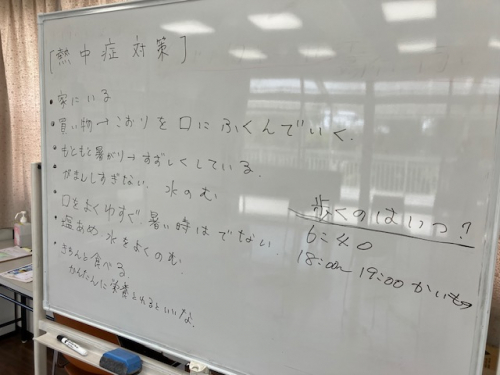 [熱中症対策]
• 家にいる
• 買い物→こおりを口にふくんでいく.
• もともと暑がり→すずしくしている.
• がまんしすぎない. 水のむ
• 口をよくゆすぐ 暑い時はでない.
• 塩あめ.水をよくのむ.
• きちんと食べる.
かんたんに栄養とれるといいな.
歩くのはいつ?
6:40
18:00~19:00 かいもの